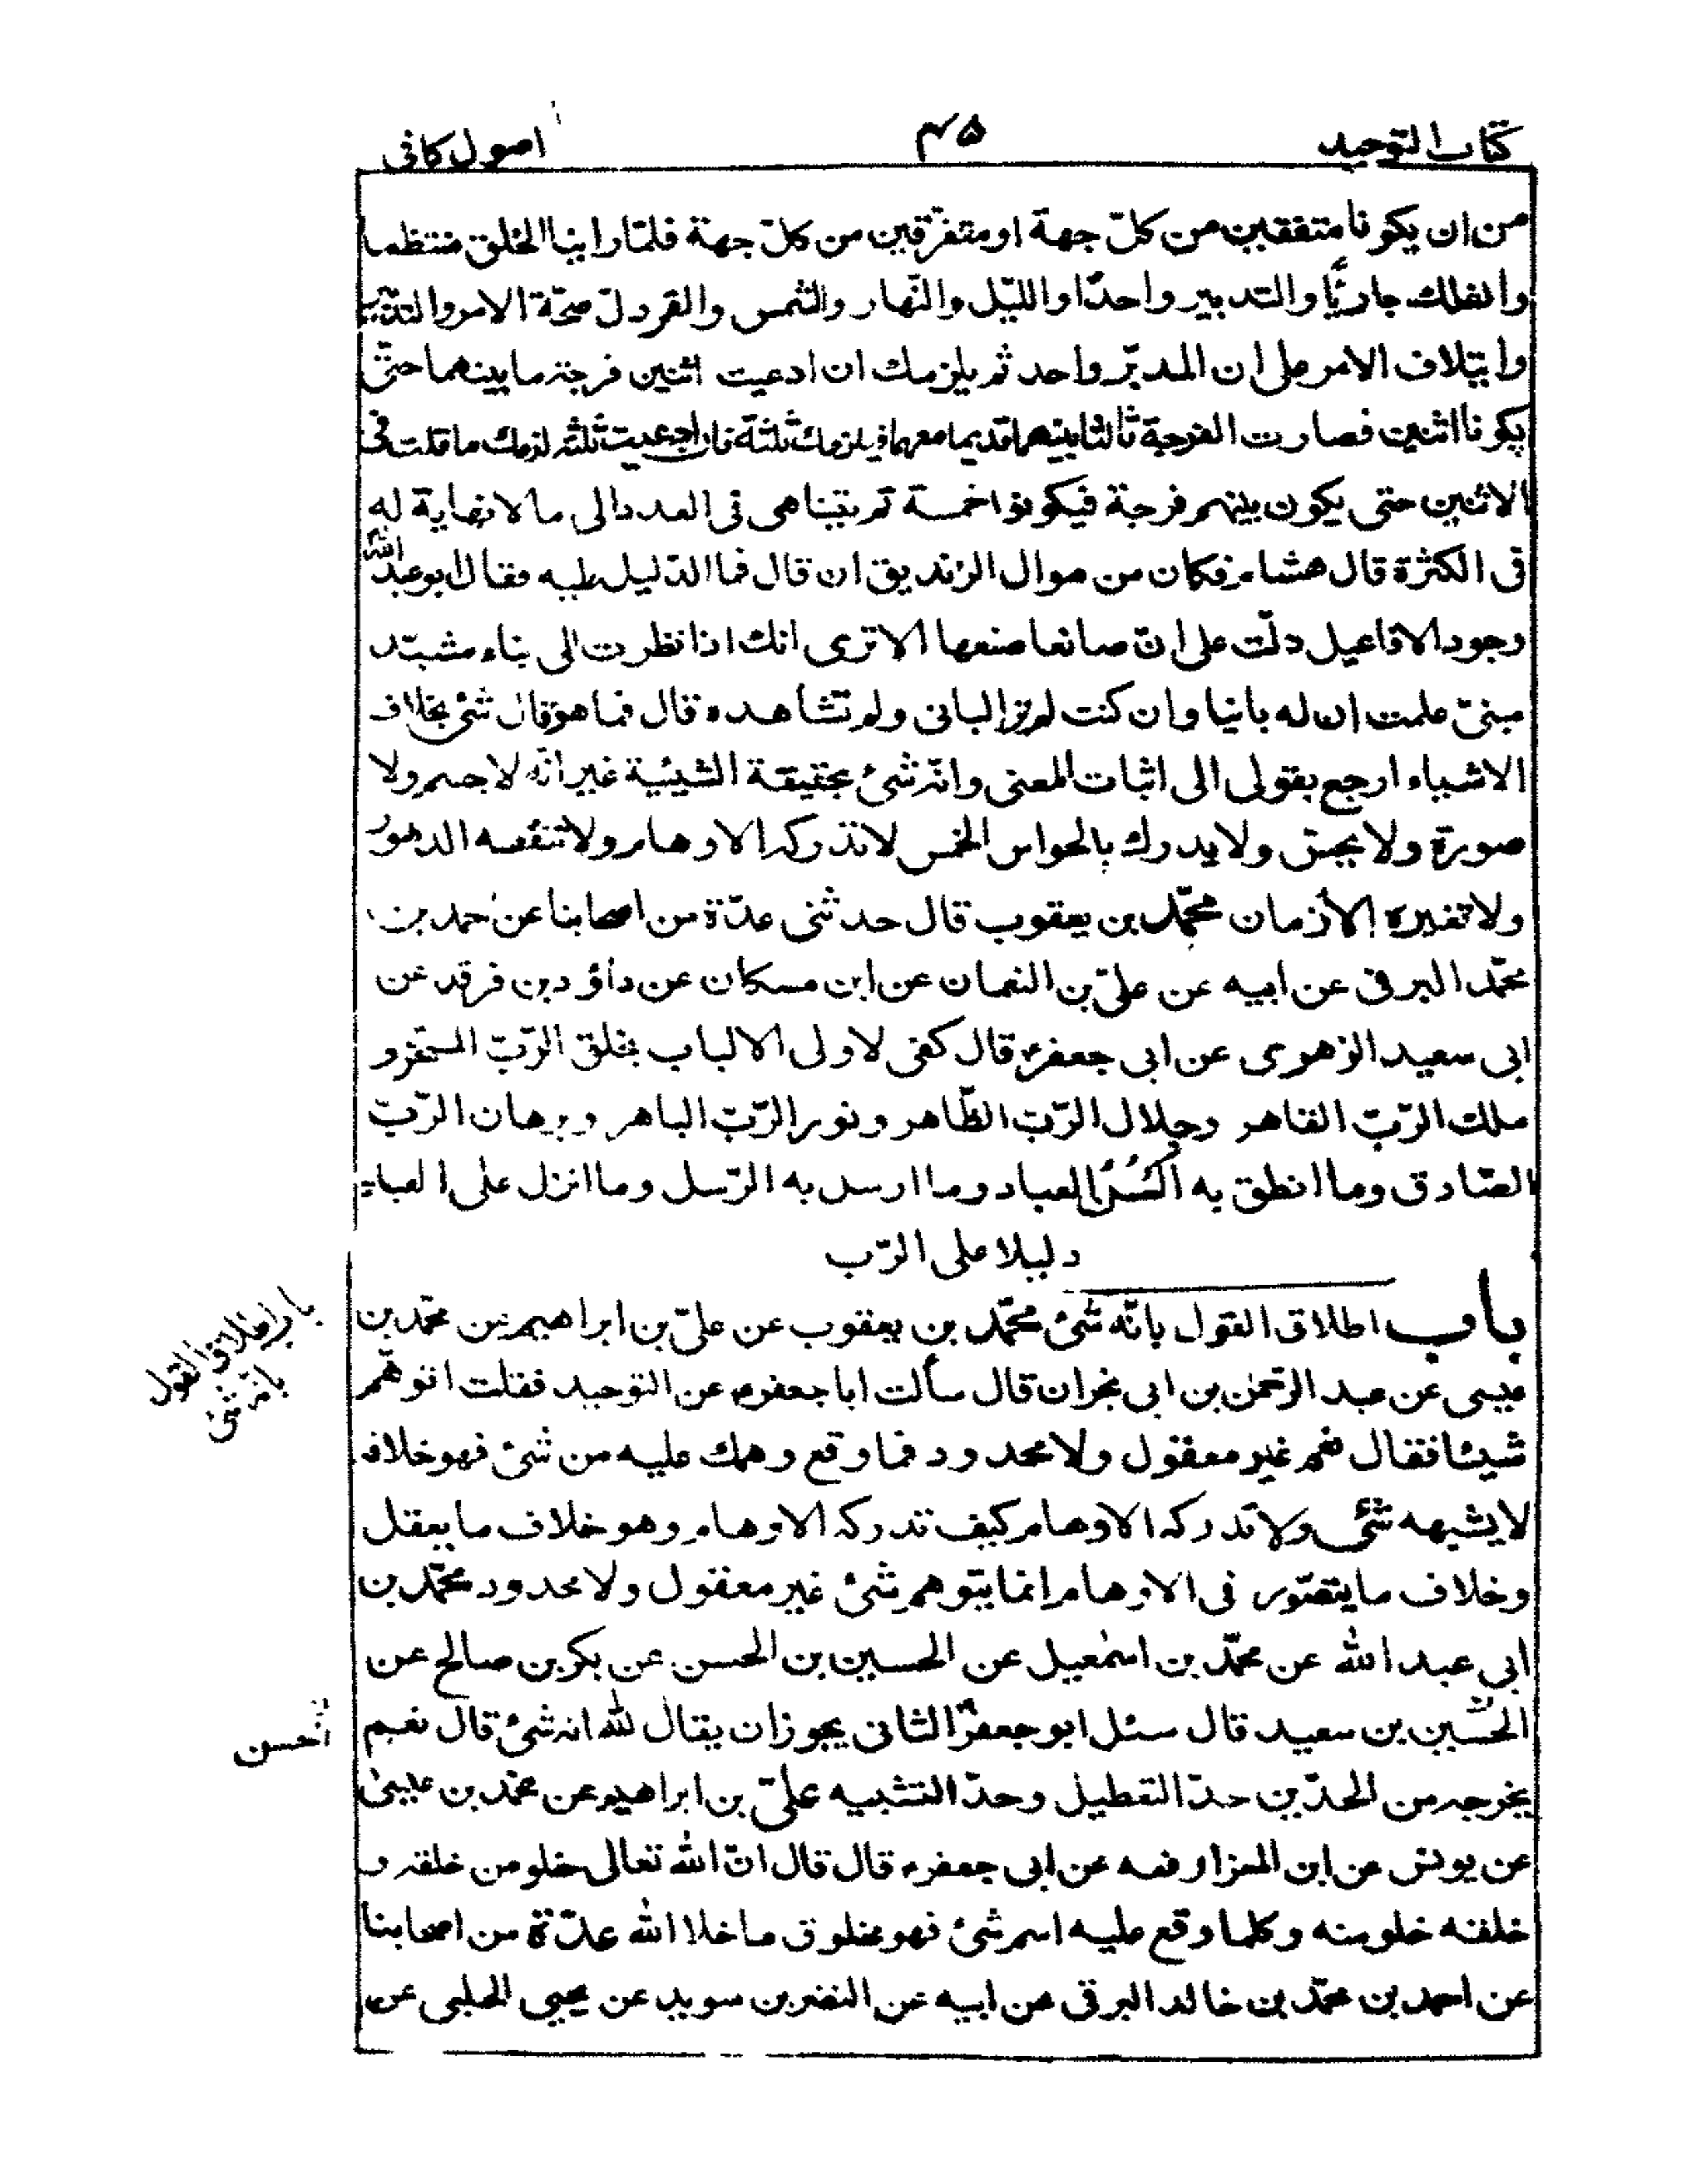 كتاب التوحيد
۴۵
اصول كافى
من ان يكونا متفقين من كلّ جهة او متفرّقين من كلّ جهة فلمّا راينا الخلق منتظما
والفلك جاريًا والتدبير واحدًا والليّل والنّهار والشّمس والقمر دلّ صحّة الامر والتدّبير
وايتلاف الامر على ان المدبّر واحد ثم يلزمك ان ادعيت اثنين فرجة ما بينهما حتّى
يكونا اثنين فصارت الفرجة ثالثا بينهما قديما معهما فيلزمك ثلثة فان ادعيت ثلثة لزمك ما قلت فى
الاثنين حتى يكون بينهم فرجة فيكونوا خمسة ثم يتناهى فى العدد الى ما لا نهاية له
فى الكثرة قال هشام فكان من سوال الزنديق ان قال فما الدّليل عليه فقال ابو عبد الله
وجود الافاعيل دلّت على انّ صانعا صنعها الا ترى انك اذا نظرت الى بناء مشيّد
مبنىّ علمت ان له بانيا وان كنت لم تر البانى ولم تشاهده قال فما هو قال شئ بخلاف
الاشياء ارجع بقولى الى اثبات المعنى وانّه شئ بحقيقة الشيئية غير انّه لا جسم ولا
صورة ولا يحسّ ولا يدرك بالحواس الخمس لا تدركه الاوهام ولا تنقصه الدهور
ولا تغيره الأزمان محمّد بن يعقوب قال حدثنى عدّة من اصحابنا عن احمد بن
محمّد البرقى عن ابيه عن علىّ بن النعمان عن ابن مسكان عن داؤد بن فرقد عن
ابى سعيد الزهرى عن ابى جعفرؑ قال كفى لاولى الالباب بخلق الرّبّ المسخّر و
ملك الرّبّ القاهر وجلال الرّبّ الظّاهر ونور الرّبّ الباهر وبرهان الرّبّ
الصّادق وما انطق به السُنُ العباد وما ارسل به الرّسل وما انزل على العباد
دليلا على الرّب
باب اطلاق القول بانّه شئ محمّد بن يعقوب عن علىّ بن ابراهيم عن محمّد بن
عيسى عن عبد الرّحمٰن بن ابى نجران قال سألت ابا جعفرؑ عن التوحيد فقلت اتوهّم
شيئا فقال نعم غير معقول ولا محدود فما وقع وهمك عليه من شئ فهو خلافه
لا يشبهه شئ ولا تدركه الاوهام كيف تدركه الاوهام وهو خلاف ما يعقل
وخلاف ما يتصّور فى الاوهام انما يتوهم شئ غير معقول ولا محدود محمّد بن
ابى عبد الله عن محمّد بن اسمٰعيل عن الحسين بن الحسن عن بكر بن صالح عن
الحسين بن سعيد قال سئل ابو جعفرؑ الثانى يجوز ان يقال لله انه شئ قال نعم
يخرجه من الحدّين حدّ التعطيل وحدّ التشبيه علىّ بن ابراهيم عن محمّد بن عيسىٰ
عن يونس عن ابى المعزا رفعه عن ابى جعفرؑ قال قال انّ الله تعالى خلو من خلقه و
خلقه خلو منه وكلما وقع عليه اسم شئ فهو مخلوق ما خلا الله عدّة من اصحابنا
عن احمد بن محمّد بن خالد البرقى عن ابيه عن النضر بن سويد عن يحيى الحلبى عن
باب اطلاق القول
بانه شئ
الحسن